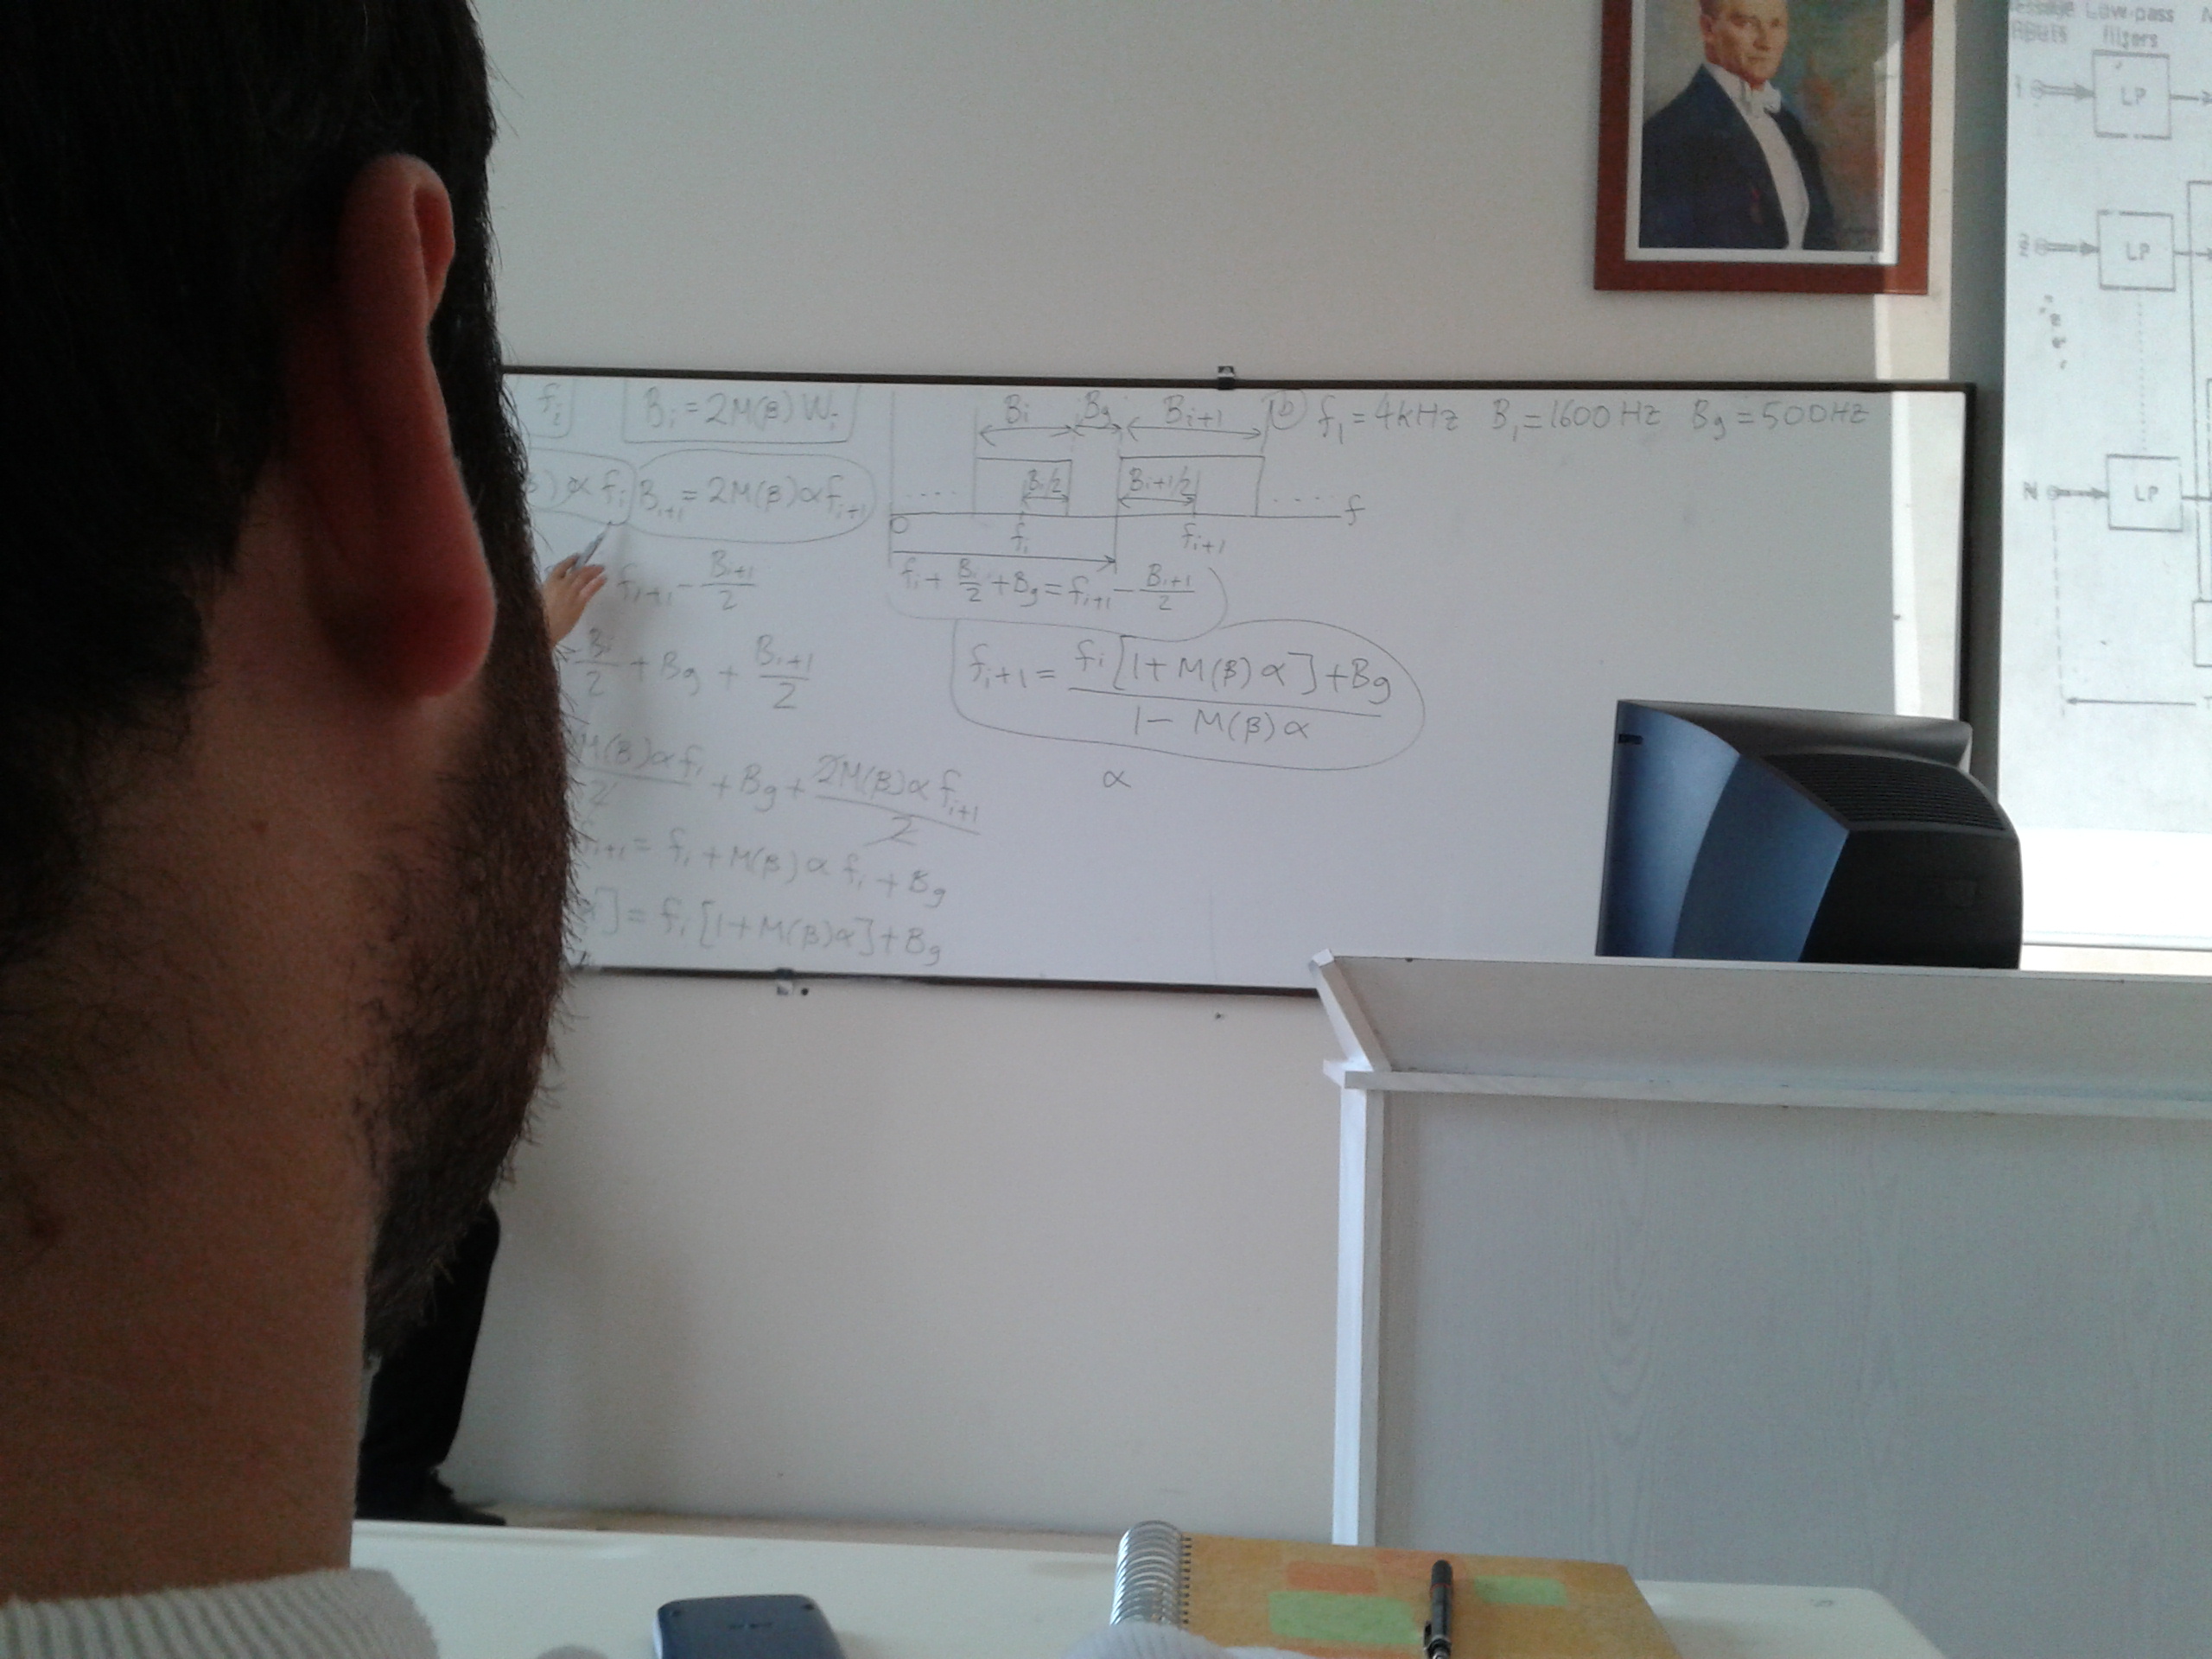 f_i
B_i = 2M(β) W_i
) α f_i
B_{i+1} = 2M(β)αf_{i+1}
f_{i+1} - B_{i+1}/2
B_i/2 + Bg + B_{i+1}/2
M(β)αf_i/2 + Bg + 2M(β)αf_{i+1}/2
f_{i+1} = f_i + M(β)αf_i + Bg
] = f_i [1+M(β)α] + Bg
B_i Bg B_{i+1}
.... B_i/2 B_{i+1}/2 ....
f
0 f_i f_{i+1}
f_i + B_i/2 + Bg = f_{i+1} - B_{i+1}/2
f_{i+1} = f_i [1+M(β)α] + Bg / 1 - M(β)α
α
b) f_1 = 4kHz B_1 = 1600Hz Bg = 500Hz
Low-pass
filters
1 LP
2 LP
N LP
T